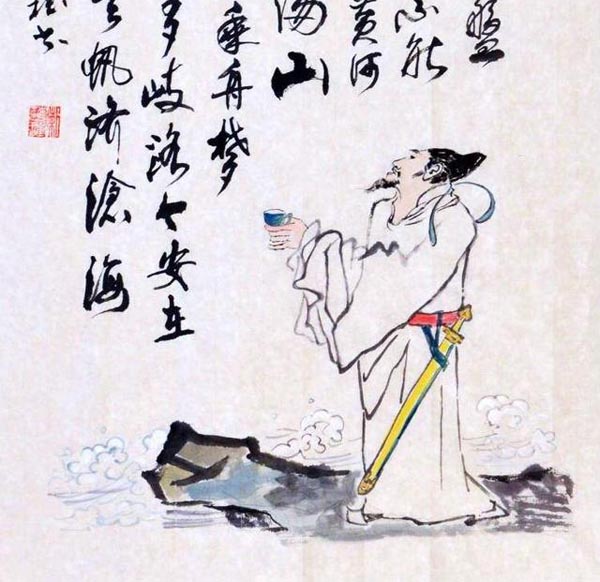 盤
不能
黄河
满山
乘舟梦
多歧路今安在
云帆济滄海
书